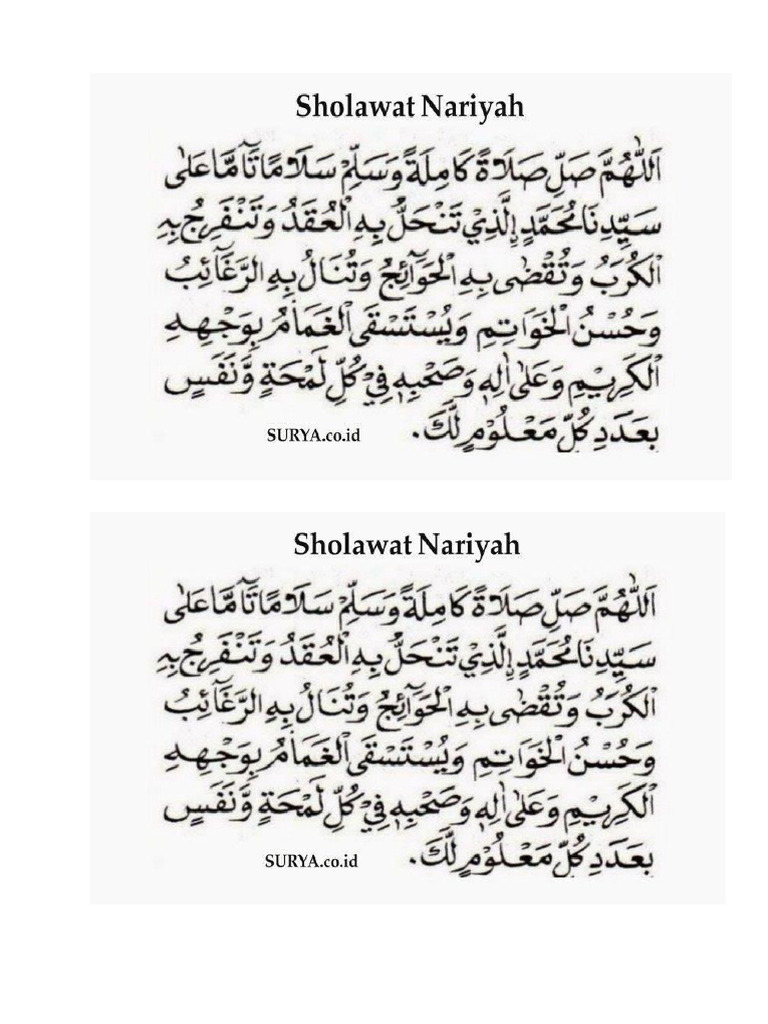 Sholawat Nariyah
اَللّٰهُمَّ صَلِّ صَلَاةً كَامِلَةً وَسَلِّمْ سَلَامًا تَآمًّا عَلٰى
سَيِّدِنَا مُحَمَّدٍ اِلَّذِيْ تَنْحَلُّ بِهِ الْعُقَدُ وَتَنْفَرِجُ بِهِ
الْكُرَبُ وَتُقْضٰى بِهِ الْحَوَآئِجُ وَتُنَالُ بِهِ الرَّغَآئِبُ
وَحُسْنُ الْخَوَاتِمِ وَيُسْتَسْقَى الْغَمَامُ بِوَجْهِهِ
الْكَرِيْمِ وَعَلٰى اٰلِهٖ وَصَحْبِهٖ فِيْ كُلِّ لَمْحَةٍ وَّنَفَسٍ
بِعَدَدِ كُلِّ مَعْلُوْمٍ لَّكَ.
SURYA.co.id
Sholawat Nariyah
اَللّٰهُمَّ صَلِّ صَلَاةً كَامِلَةً وَسَلِّمْ سَلَامًا تَآمًّا عَلٰى
سَيِّدِنَا مُحَمَّدٍ اِلَّذِيْ تَنْحَلُّ بِهِ الْعُقَدُ وَتَنْفَرِجُ بِهِ
الْكُرَبُ وَتُقْضٰى بِهِ الْحَوَآئِجُ وَتُنَالُ بِهِ الرَّغَآئِبُ
وَحُسْنُ الْخَوَاتِمِ وَيُسْتَسْقَى الْغَمَامُ بِوَجْهِهِ
الْكَرِيْمِ وَعَلٰى اٰلِهٖ وَصَحْبِهٖ فِيْ كُلِّ لَمْحَةٍ وَّنَفَسٍ
بِعَدَدِ كُلِّ مَعْلُوْمٍ لَّكَ.
SURYA.co.id